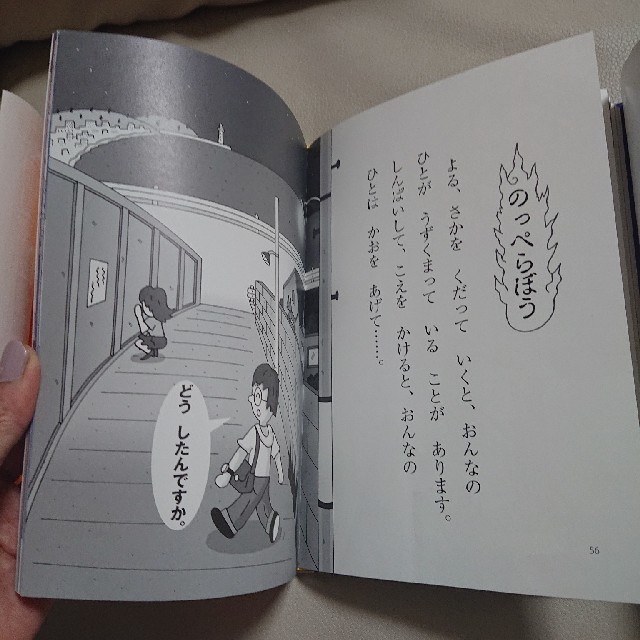 のっぺらぼう
よる、さかを くだって いくと、おんなの
ひとが うずくまって いる ことが あります。
しんぱいして、こえを かけると、おんなの
ひとは かおを あげて……。
56
どう したんですか。